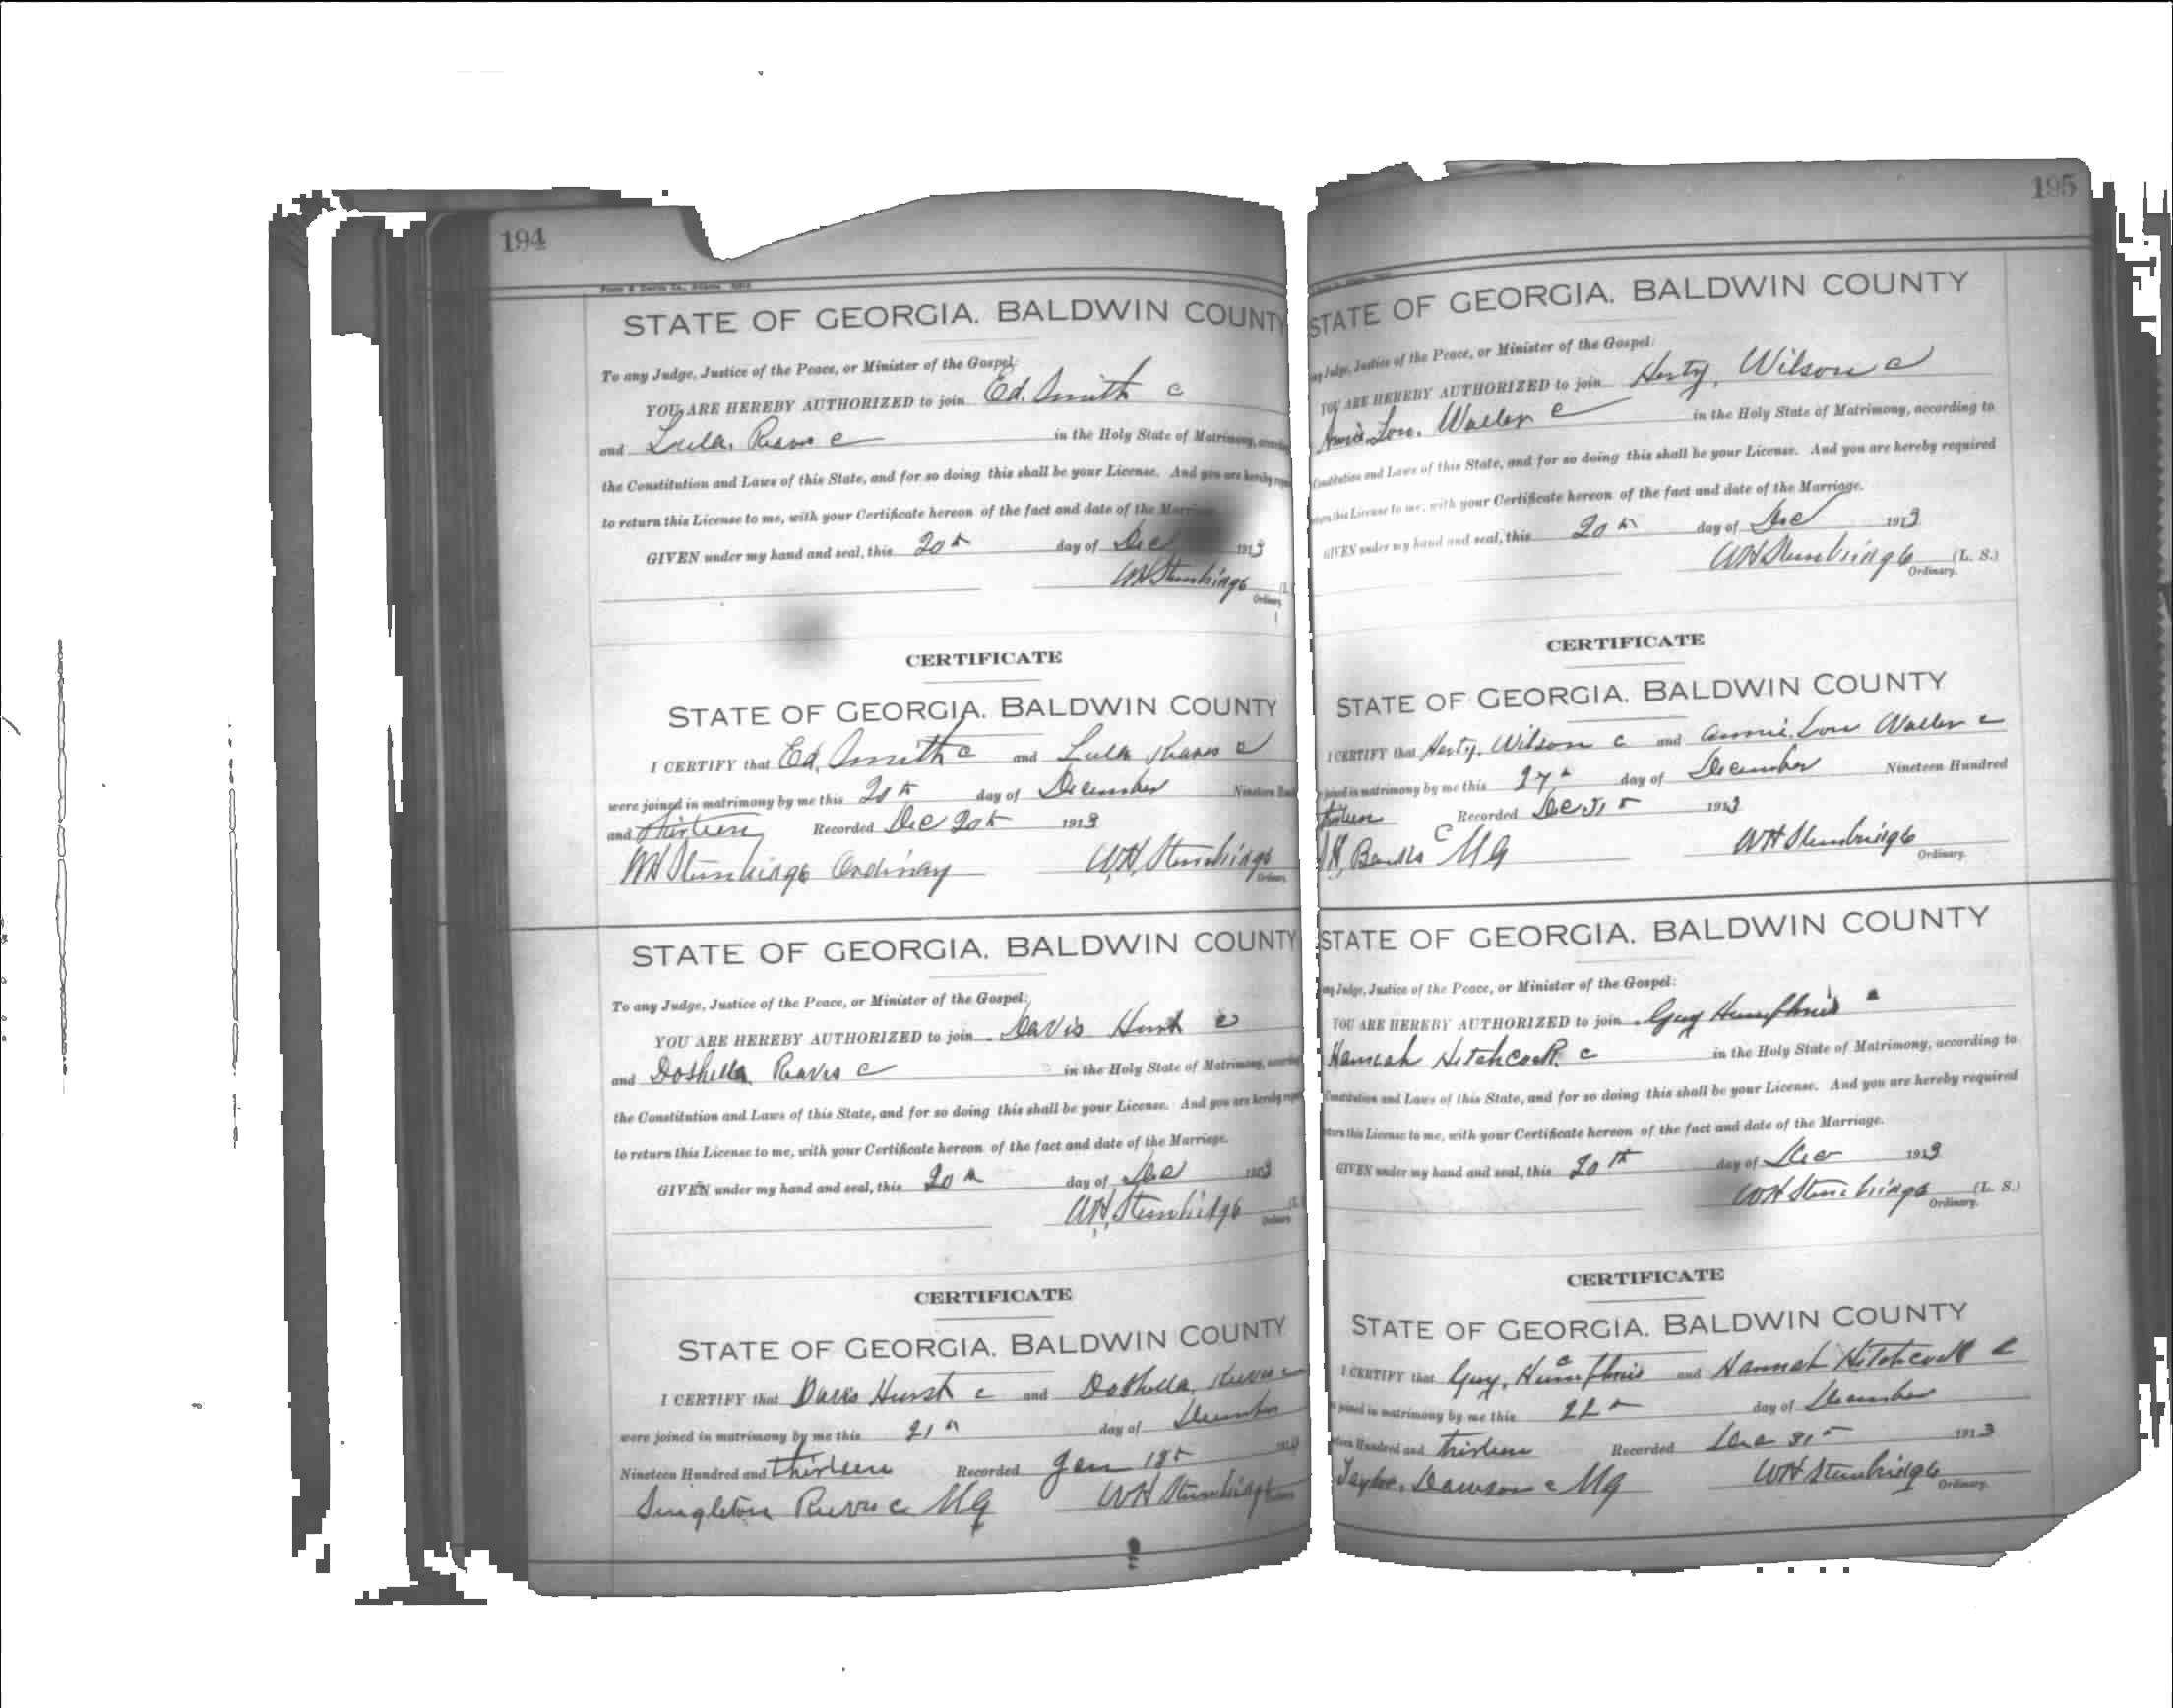 194
STATE OF GEORGIA. BALDWIN COUNTY
To any Judge, Justice of the Peace, or Minister of the Gospel:
YOU ARE HEREBY AUTHORIZED to join Ed. Smith c
and Lula. c in the Holy State of Matrimony,
the Constitution and Laws of this State, and for so doing this shall be your License. And you are hereby
to return this License to me, with your Certificate hereon of the fact and date of the
GIVEN under my hand and seal, this 20th day of Dec 1913
WH Stembridge
Ordinary
CERTIFICATE
STATE OF GEORGIA. BALDWIN COUNTY
I CERTIFY that Ed. Smith c and Lula c
were joined in matrimony by me this day of December Nineteen
and Thirteen Recorded Dec 20th 1913
WH Stembridge Ordinary W.H. Stembridge
Ordinary
STATE OF GEORGIA. BALDWIN COUNTY
To any Judge, Justice of the Peace, or Minister of the Gospel:
YOU ARE HEREBY AUTHORIZED to join Davis Hurst c
and Doshella Reaves c in the Holy State of Matrimony,
the Constitution and Laws of this State, and for so doing this shall be your License. And you are hereby
to return this License to me, with your Certificate hereon of the fact and date of the Marriage.
GIVEN under my hand and seal, this 20th day of Dec 1913
W.H. Stembridge
Ordinary
CERTIFICATE
STATE OF GEORGIA. BALDWIN COUNTY
I CERTIFY that Davis Hurst c and Doshella
were joined in matrimony by me this 21st day of December
Nineteen Hundred and Thirteen Recorded Jan
Singleton c MG WH Stembridge
195
STATE OF GEORGIA. BALDWIN COUNTY
Judge, Justice of the Peace, or Minister of the Gospel:
YOU ARE HEREBY AUTHORIZED to join Herty. Wilson c
Annie Lou. Waller c in the Holy State of Matrimony, according to
Constitution and Laws of this State, and for so doing this shall be your License. And you are hereby required
this License to me, with your Certificate hereon of the fact and date of the Marriage.
GIVEN under my hand and seal, this 20th day of Dec 1913
WH Stembridge (L. S.)
Ordinary.
CERTIFICATE
STATE OF GEORGIA. BALDWIN COUNTY
I CERTIFY that Herty. Wilson c and Annie Lou Waller c
joined in matrimony by me this 27th day of December Nineteen Hundred
Recorded Dec 31st 1913
c MG WH Stembridge
Ordinary.
STATE OF GEORGIA. BALDWIN COUNTY
Judge, Justice of the Peace, or Minister of the Gospel:
YOU ARE HEREBY AUTHORIZED to join Guy Humphries
Hannah Hitchcock c in the Holy State of Matrimony, according to
Constitution and Laws of this State, and for so doing this shall be your License. And you are hereby required
this License to me, with your Certificate hereon of the fact and date of the Marriage.
GIVEN under my hand and seal, this 20th day of Dec 1913
WH Stembridge (L. S.)
Ordinary.
CERTIFICATE
STATE OF GEORGIA. BALDWIN COUNTY
I CERTIFY that Guy. Humphries c and Hannah Hitchcock c
joined in matrimony by me this 22 day of December
Hundred and Thirteen Recorded Dec 31st 1913
Taylor. Dawson c MG WH Stembridge
Ordinary.